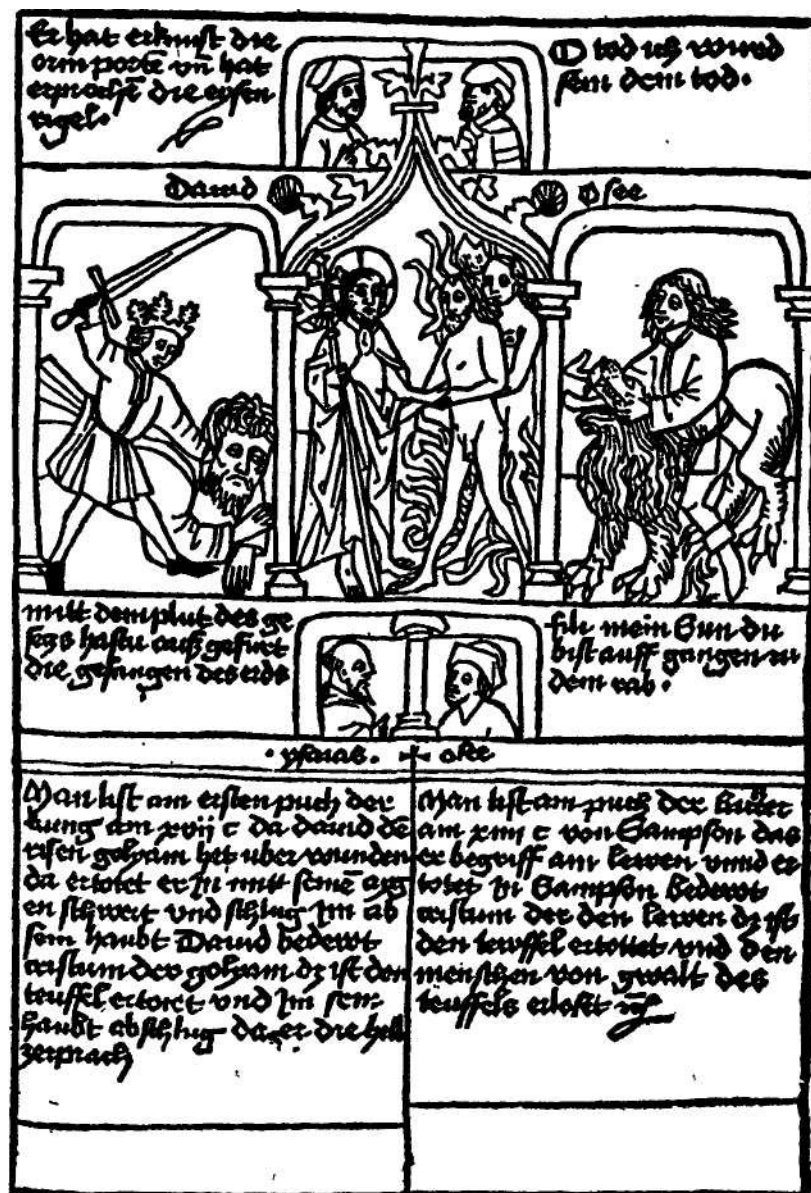 Er hat erknist die
orin porte vn̄ hat
erprochē die eysen
rigel.
O tod ich wiird
sein dem tod.
Dauid
Osee
mitt dem plut des ge
secz hastu auß gefurt
die gefangen des
fili mein Sun du
bist auff gangen zu
dem rab.
ysaias.
Man list am ersten puch der
kung am xvij c da dauid dē
risen golyam het uber wunden
da ertotet er in mitt seinē ayg
en schwert vnd schlug im ab
sein haubt Dauid bedewt
cristum der golyam dz ist den
teuffel ertotet vnd im sein
haubt abschlug da er die hell
zerprach
Man list am puch der
am xiiij c von Sampson das
er begriff ain lewen vnnd er
totet in Sampson bedewt
cristum der den lewen dz ist
den tewffel ertottet vnd den
menschen von gwalt des
teuffels erlost